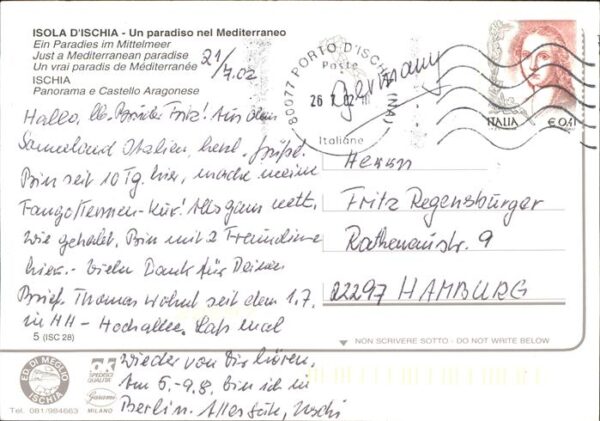 ISOLA D'ISCHIA - Un paradiso nel Mediterraneo
Ein Paradies im Mittelmeer
Just a Mediterranean paradise
Un vrai paradis de Méditerranée
ISCHIA
Panorama e Castello Aragonese
21/7.02
80077 PORTO D'ISCHIA (NA)
Poste
26 7 02
Italiane
Germany
ITALIA € 0,41
Hallo, lb. Bruder Fritz! Aus dem
Italien, herzl. Grüße.
Bin seit 10 Tg. hier, mache meine
Fango/Termen-Kur! Alles ganz nett,
wie gehabt. Bin mit 2 Freundinnen
hier. - Vielen Dank für Deinen
Brief. Thomas wohnt seit dem 1.7.
in HH - Hochallee. Laß mal
wieder von Dir hören.
Am 5.-9.8. bin ich in
Berlin. Alles Gute, Uschi
Herrn
Fritz Regensburger
Rathenaustr. 9
22297 HAMBURG
5 (ISC 28)
NON SCRIVERE SOTTO - DO NOT WRITE BELOW
ED. DI MEGLIO
ISCHIA
Tel. 081/984663
SPEDISCI
QUALITÀ
Garami
MILANO